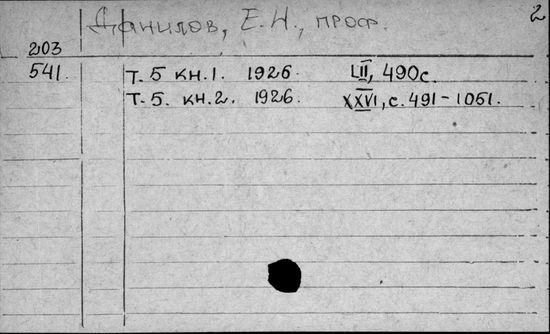 Данилов, Е.Н., проф.
2
203
541. т. 5 кн. 1. 1926. LII, 490с.
т. 5. кн. 2. 1926. XXVI, с. 491-1051.